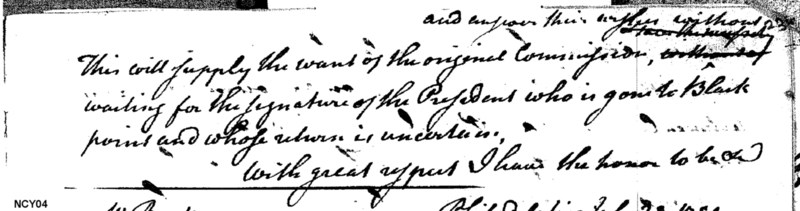 and answer their wishes without
This will supply the want of the original Commission,
waiting for the signature of the President who is gone to Black
point and whose return is uncertain.
With great respect I have the honor to be &c
NCY04